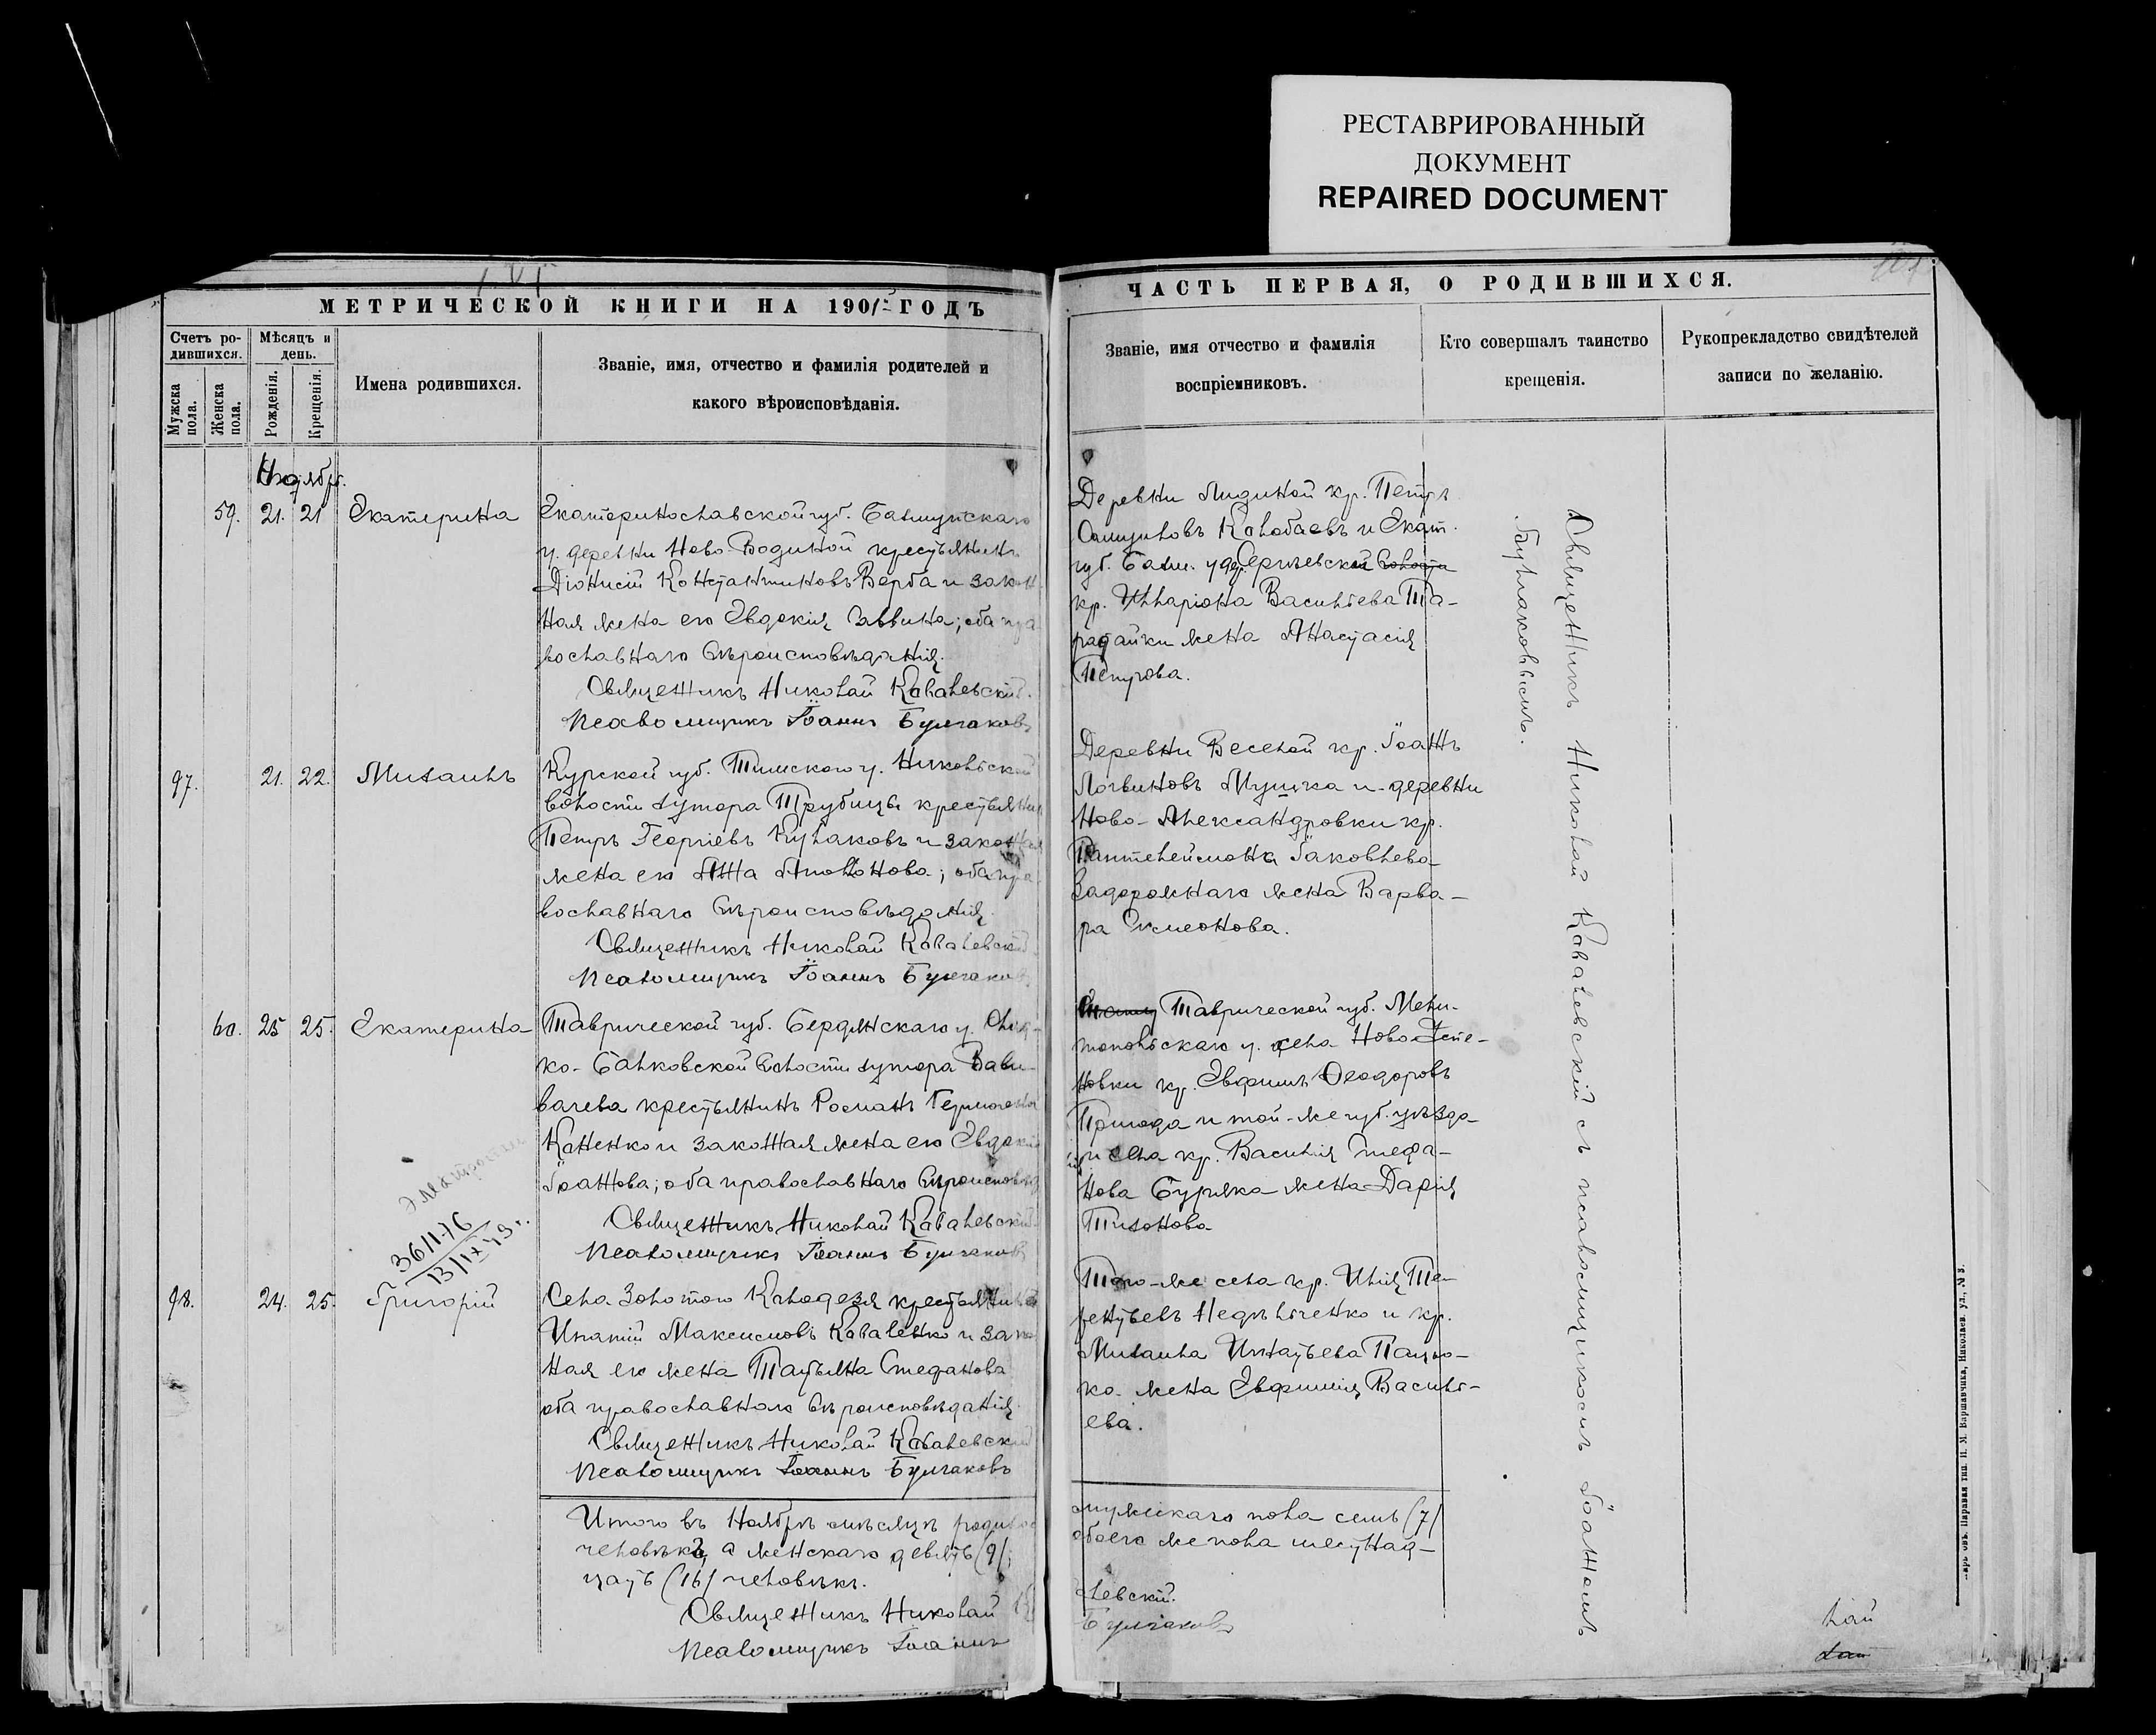 РЕСТАВРИРОВАННЫЙ
ДОКУМЕНТ
REPAIRED DOCUMENT
МЕТРИЧЕСКОЙ КНИГИ НА 190 ГОДЪ
Счетъ ро-
дившихся.
Мѣсяцъ и
день.
Мужска
пола.
Женска
пола.
Рожденія.
Крещенія.
Имена родившихся.
Званіе, имя, отчество и фамилія родителей и
какого вѣроисповѣданія.
Ноябрь.
59. 21. 21 Екатерина
Екатеринославской губ. Бахмутскаго
у. деревни Ново Водиной крестьянинъ
Діонисій Константиновъ Верба и закон-
ная жена его Евдокія Саввина; оба пра
вославнаго вѣроисповѣданія.
Священникъ Николай Ковалевскій.
Псаломщикъ Іоаннъ Булгаковъ
97. 21. 22. Михаилъ
Курской губ. Тимскаго у. Никольской
волости хутора Трубицы крестьянинъ
Петръ Георгіевъ Кулаковъ и законная
жена его Анна Антонова; оба пра
вославнаго вѣроисповѣданія.
Священникъ Николай Ковалевскій
Псаломщикъ Іоаннъ Булгаковъ
60. 25 25. Екатерина
Таврической губ. Бердянскаго у.
ко-Балковской волости хутора Вави-
лачева крестьянинъ Романъ
Каненко и законная жена его Евдокія
Іоаннова; оба православнаго вѣроисповѣд
Священникъ Николай Ковалевскій
Псаломщикъ Іоаннъ Булгаковъ
36/1-76
13/IX 49 г.
98. 24. 25. Григорій
Села Золотого Колодезя крестьянинъ
Игнатій Максимовъ Коваленко и закон
ная его жена Татьяна Стефанова
оба православнаго вѣроисповѣданія.
Священникъ Николай Ковалевскій
Псаломщикъ Іоаннъ Булгаковъ
Итого въ Ноябрѣ мѣсяцѣ родилос
человѣкъ, а женскаго девять (9/;
цать (16/ человѣкъ.
Священникъ Николай
Псаломщикъ Іоаннъ
ЧАСТЬ ПЕРВАЯ, О РОДИВШИХСЯ.
Званіе, имя отчество и фамилія
воспріемниковъ.
Кто совершалъ таинство
крещенія.
Рукоприкладство свидѣтелей
записи по желанію.
Деревни Лидиной кр. Петръ
Колобаевъ и Екат.
губ. Бахм. у. дер.
кр. Илларіона Васильева Та-
жена Анастасія
Петрова.
Деревни Веселой кр. Іоаннъ
Логвиновъ и деревни
Ново-Александровки кр.
Пантелеймона Іаковлева
Задорожнаго жена Варва-
ра Симеонова.
Таврической губ. Мели-
топольскаго у. села Ново
новки кр. Евфимъ Ѳеодоровъ
и той-же губ. уѣзда
и села кр. Василія Стефа-
нова Буряка жена Дарія
Тихонова
Того-же села кр. Илія Те-
рентьевъ Недѣльченко и кр.
Михаила Игнатьева
ко жена Евфимія Василь-
ева.
мужскаго пола семь (7/
обоего же пола шестнад-
левскій.
Булгаковъ
Священникъ Николай Ковалевскій съ псаломщикомъ Іоанномъ
Булгаковымъ.
Паровая тип. И. М. Варшавчика, Николаев. ул., № 3.